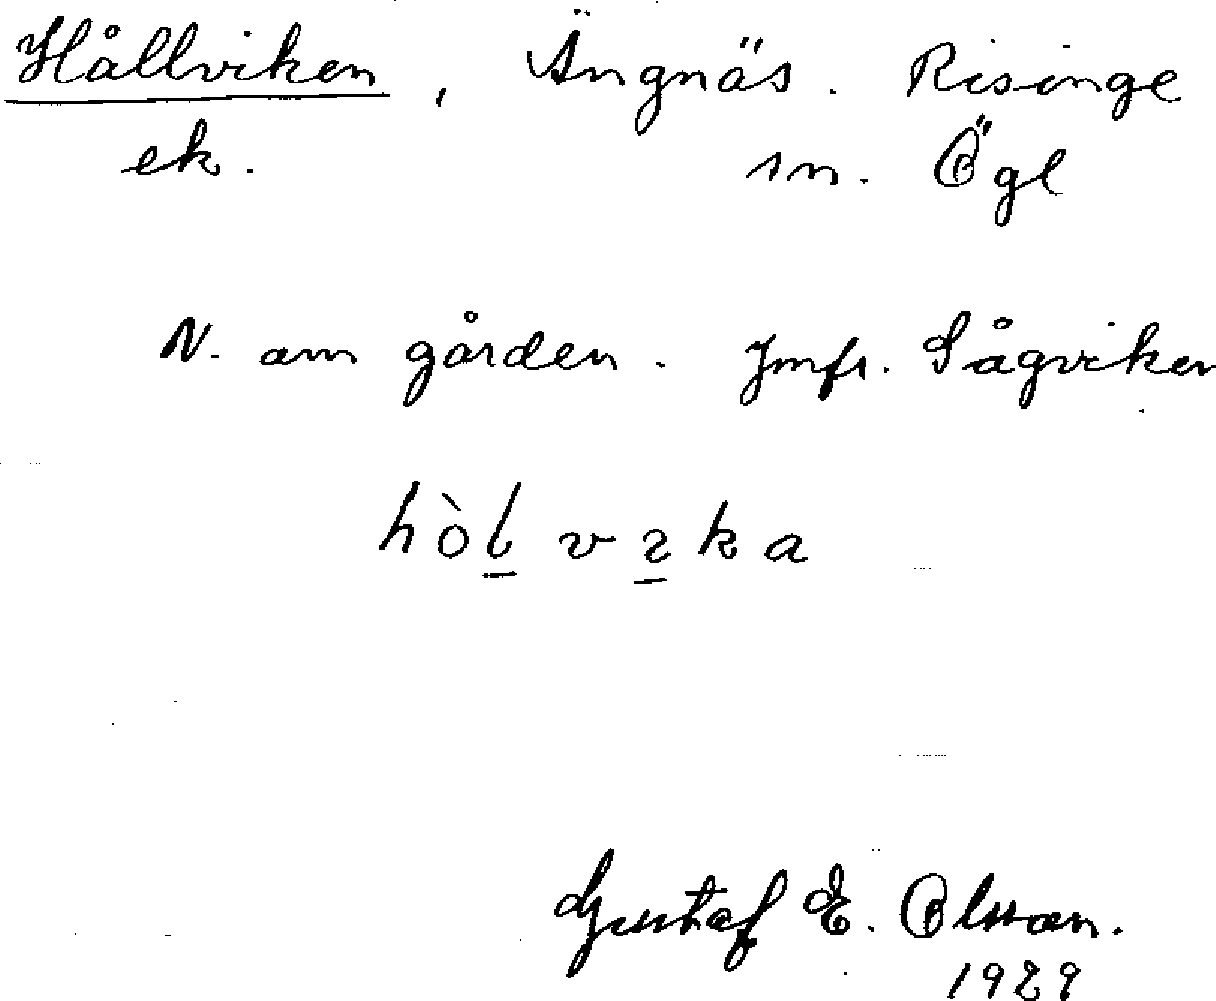 Hållviken, Ängnäs. Risinge
ek. sn. Ögl
N. om gården. Jmfr. Sågviken
hòlvıka
Gustaf E. Olsson.
1929